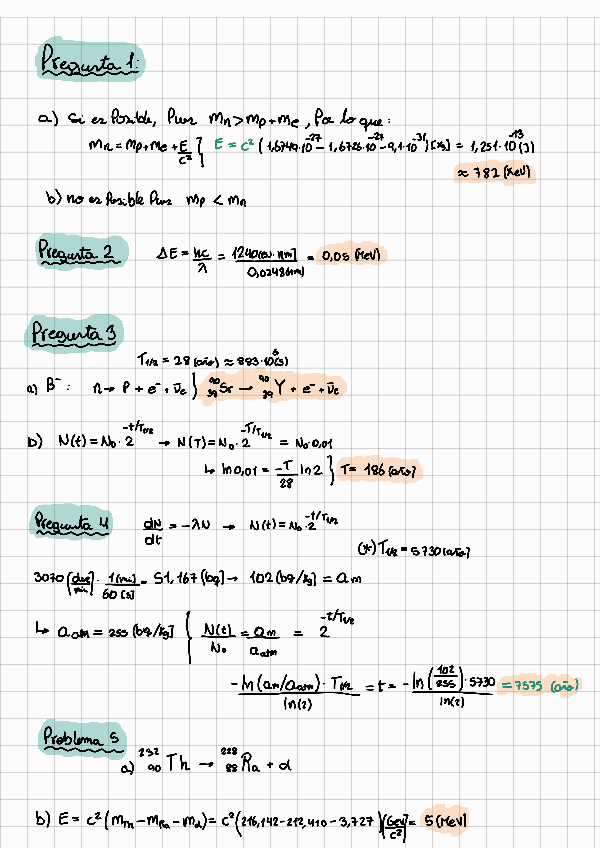 Pregunta 1:
a) Si es Posible, Pues mn > mp + me, Por lo que:
mn = mp + me + E/c² } E = c² (1,6749·10^-27 - 1,6726·10^-27 - 9,1·10^-31) [Kg] = 1,251·10^-13 (J)
≈ 782 [KeV]
b) no es Posible Pues mp < mn
Pregunta 2 ΔE = hc/λ = 1240[eV·nm]/0,0248[nm] = 0,05 (MeV)
Pregunta 3
T1/2 = 28 (año) ≈ 883·10^6 (s)
a) β⁻: n → P + e⁻ + ν̄e } ⁹⁰₃₈Sr → ⁹⁰₃₉Y + e⁻ + ν̄e
b) N(t) = N₀·2^(-t/T1/2) → N(T) = N₀·2^(-T/T1/2) = N₀·0,01
↳ ln 0,01 = -T/28 ln 2 } T = 186 (año)
Pregunta 4 dN/dt = -λN → N(t) = N₀·2^(-t/T1/2)
(*) T1/2 = 5730 (año)
3070 [des/min] · 1[min]/60[s] = 51,167 (bq) → 102 (bq/kg) = am
↳ aatm = 255 (bq/kg) { N(t)/N₀ = am/aatm = 2^(-t/T1/2)
-ln(am/aatm)·T1/2/ln(2) = t = -ln(102/255)·5730/ln(2) = 7575 (año)
Problema 5
a) ²³²₉₀Th → ²²⁸₈₈Ra + α
b) E = c² (mTh - mRa - mα) = c² (216,142 - 212,410 - 3,727) [GeV/c²] = 5 (MeV)